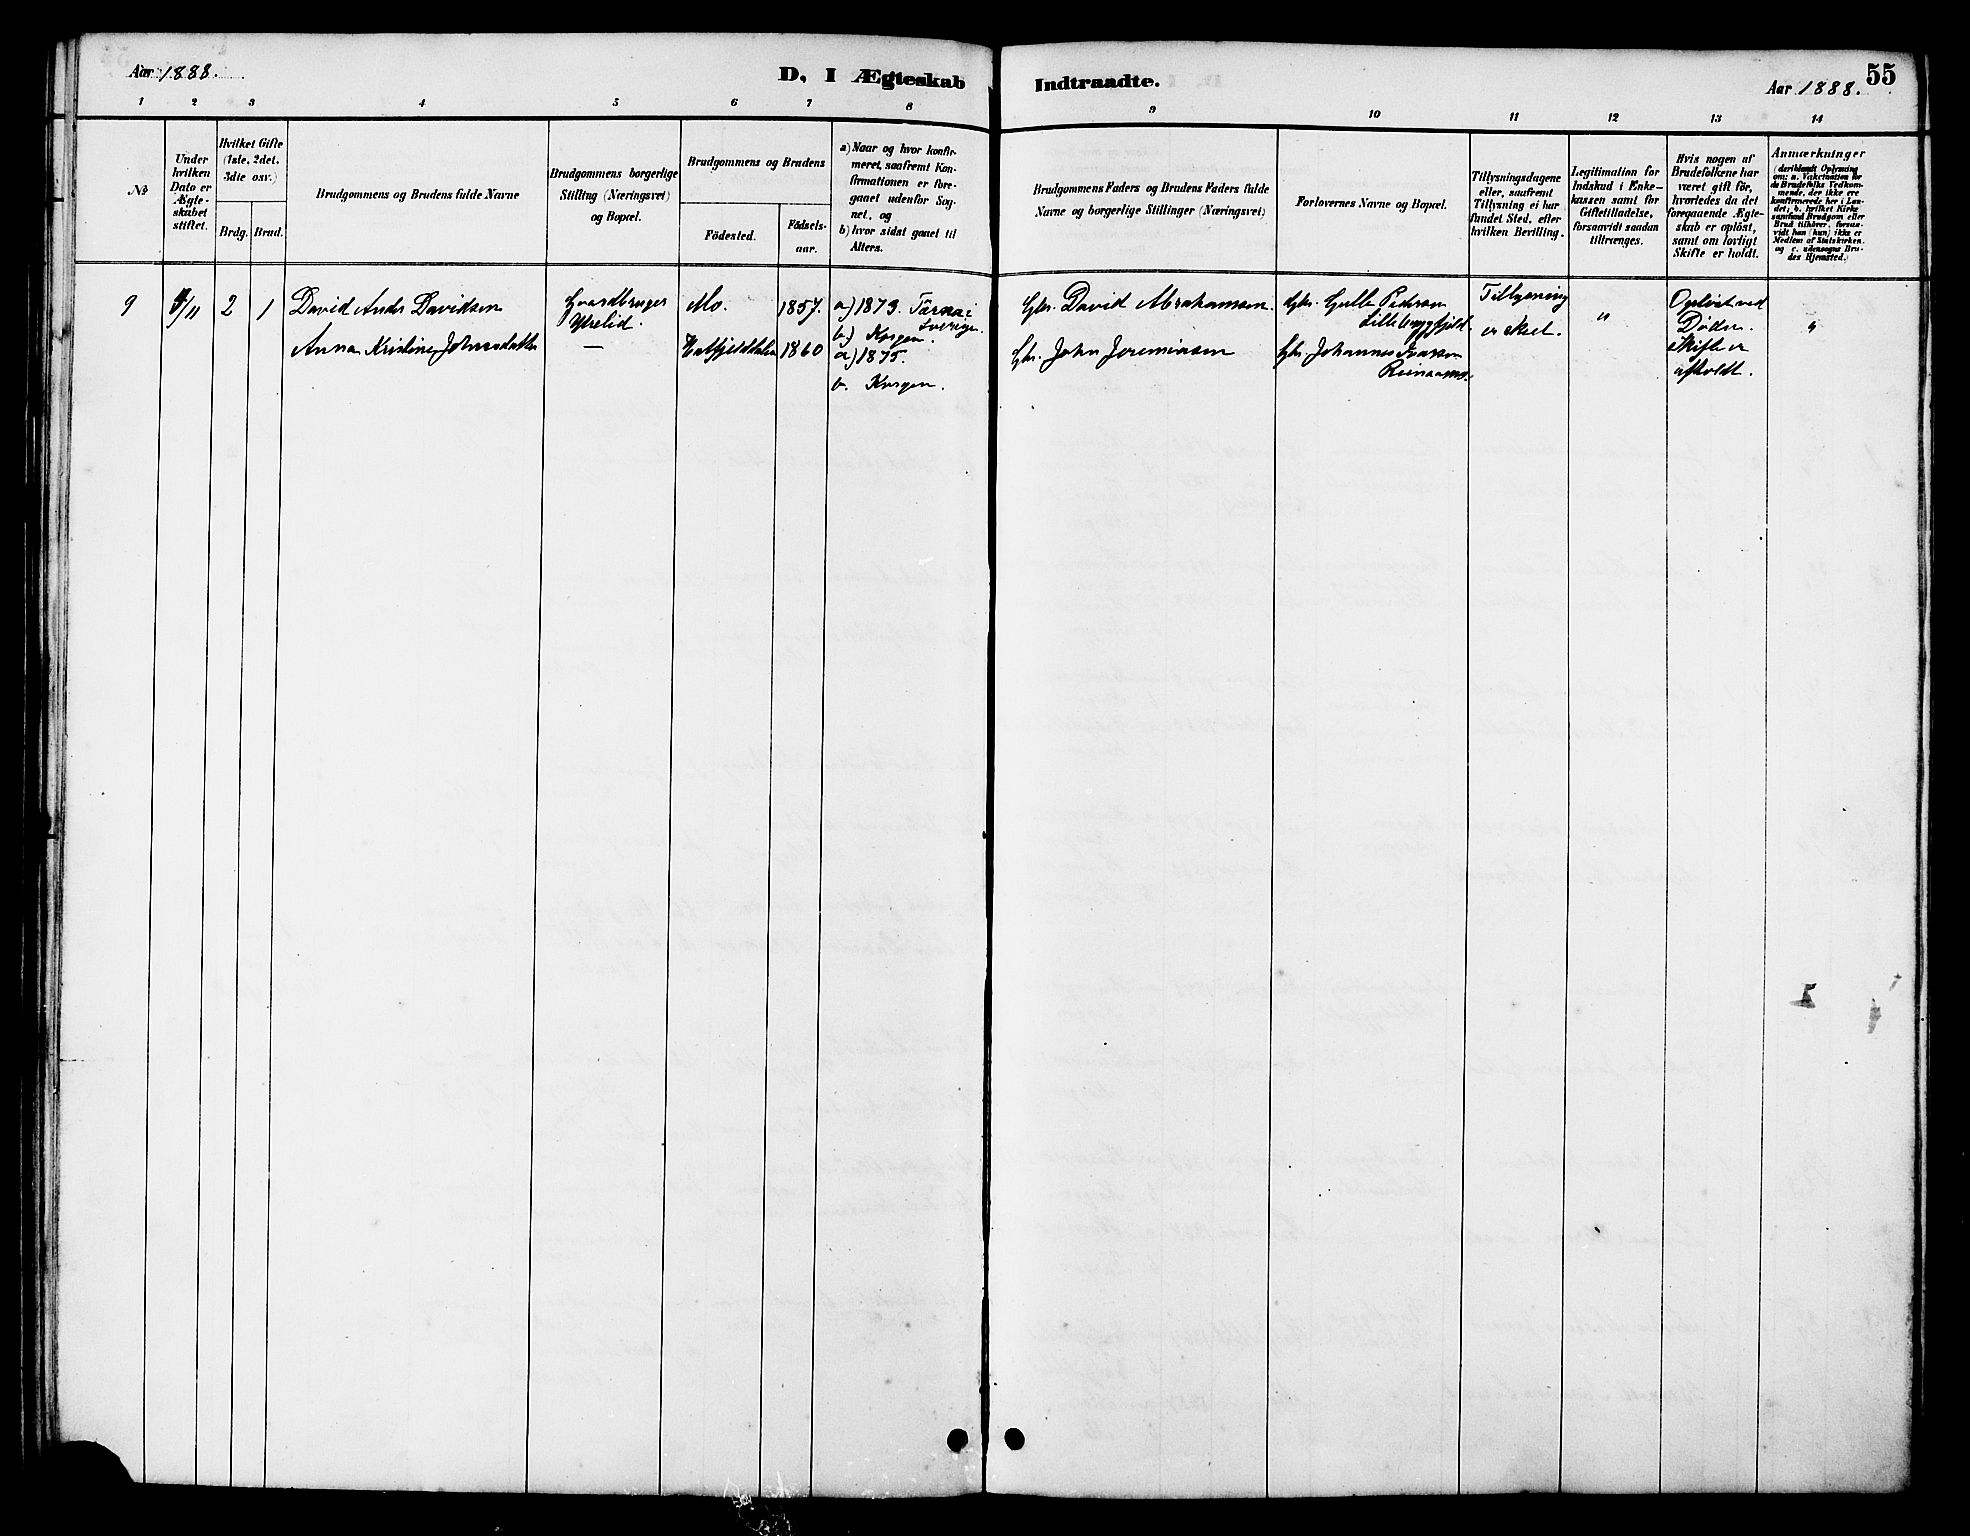 Aar 1888.
D, I Ægteskab
Indtraadte.
Aar 1888.
55
1 2 3 4 5 6 7 8
9 10 11 12 13 14
№
Under
hvilken
Dato er
Ægte-
skabet
stiftet.
Hvilket Gifte
(1ste, 2det,
3die osv.)
Brdg. Brud.
Brudgommens og Brudens fulde Navne
Brudgommens borgerlige
Stilling (Næringsvei)
og Bopæl.
Brudgommens og Brudens
Födested.
Födsels-
aar.
a) Naar og hvor konfir-
meret, saafremt Kon-
firmationen er fore-
gaaet udenfor Sog-
net, og
b) hvor sidst gaaet til
Alters.
Brudgommens Faders og Brudens Faders fulde
Navne og borgerlige Stillinger (Næringsvei)
Forlovernes Navne og Bopæl.
Tillysningsdagene
eller, saafremt
Tillysning ei har
fundet Sted, efter
hvilken Bevilling.
Legitimation for
Indskud i Enke-
kassen samt for
Giftetilladelse,
forsaavidt saadan
tiltrænges.
Hvis nogen af
Brudefolkene har
været gift för,
hvorledes da det
foregaaende Ægte-
skab er oplöst,
samt om lovligt
Skifte er holdt.
Anmærkninger
(deriblandt Oplysning
om: a. Vakcination for
de Brudefolks Vedkom-
mende, der ikke ere
konfirmerede her i Lan-
det; b. hvilket Kirke
samfund Brudgom eller
Brud tilhörer, forsaa-
vidt han (hun) ikke er
Medlem af Statskirken,
og c. udensogns Bru-
des Hjemsted.)
9 /11 2 1 David Anders Davidsen
Gaardbruger
Mo. 1857. a) 1873. Tärna i
Sverige.
b) Korgen.
Anna Kristine Johnsdatter
— Hatfjelddalen 1860 a) 1875.
b. Korgen.
Gbr. David Abrahamsen.
Gbr. John Jeremiasen
Gbr. Gulle Pedersen
Lillebryggfjeld.
Gbr. Johannes Ivarsen
Tillysning
er skel.
"
Opløst ved
Døden.
Skifte er
afholdt.
"